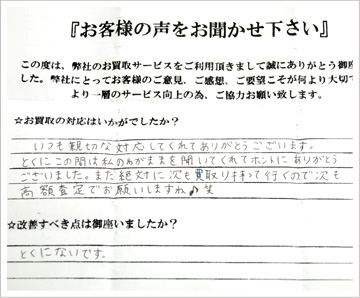 『お客様の声をお聞かせ下さい』
この度は、弊社のお買取サービスをご利用頂きまして誠にありがとう御座
した。弊社にとってお客様のご意見、ご感想、ご要望こそが何より大切で
より一層のサービス向上の為、ご協力お願い致します。
☆お買取の対応はいかがでしたか？
いつも親切な対応してくれてありがとうございます。
とくにこの間は私のわがままを聞いてくれてホントにありがとう
ございました。また絶対に次も買取り持って行くので次も
高額査定でお願いしますね♪笑
☆改善すべき点は御座いましたか？
とくにないです。